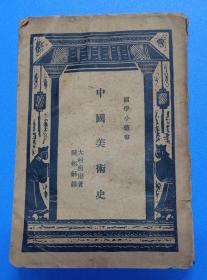 國學小叢書
中國美術史
大村西崖著
陳彬龢譯